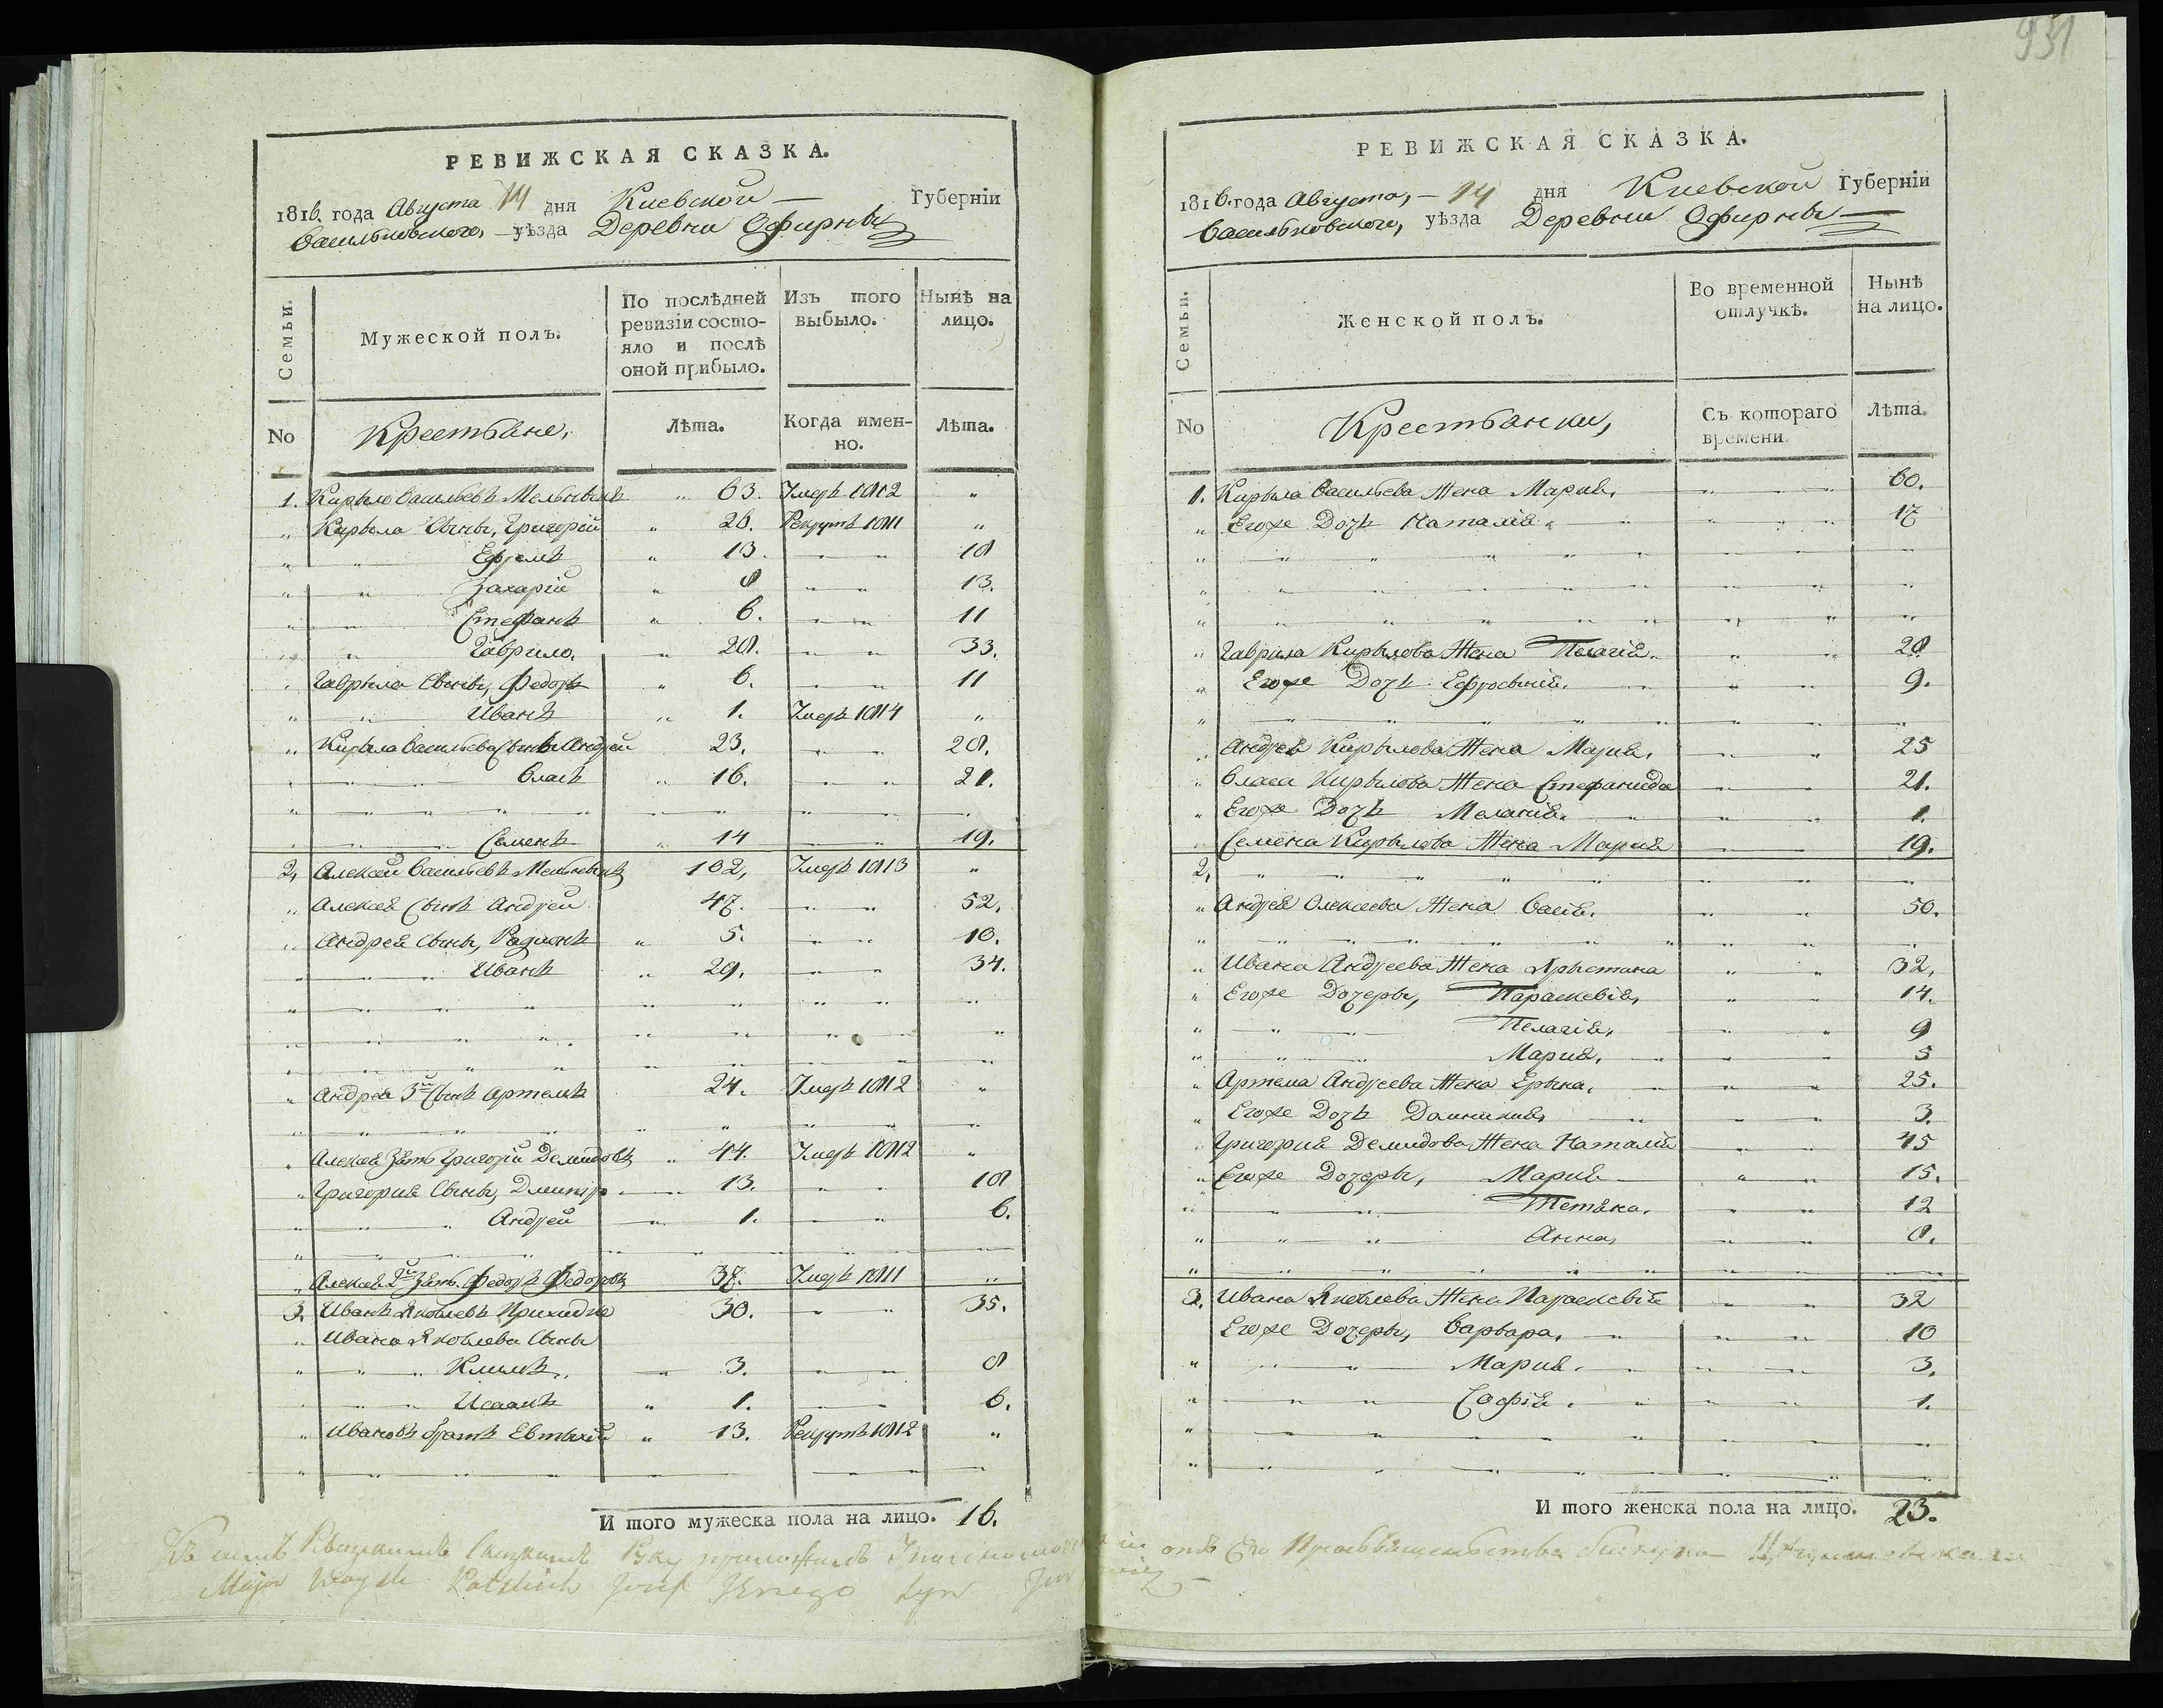 931
РЕВИЖСКАЯ СКАЗКА.
1816. года Августа 14 дня Киевской Губерніи
Васильковского, уѣзда Деревни Офирны
Семьи.
Мужеской полъ.
По послѣдней ревизіи состо-
яло и послѣ
оной прибыло.
Изъ того выбыло.
Нынѣ на лицо.
No
Крестьяне,
Лѣта.
Когда имен-
но.
Лѣта.
1. Кирыло Васильевъ Мельныкъ " 63. Умеръ 1812 "
" Кирыла Сыны, Григорій " 26. Рекрутъ 1811 "
" " Ефремъ " 13. " " 18
" " Захарій " 8 " " 13.
" " Стефанъ " 6. " " 11
" " Гаврило, " 28. " " 33.
" Гаврыла Сыны, Федоръ " 6. " " 11
" " Иванъ " 1. Умеръ 1814 "
" Кирыла Васильева Сыны Андрей 23. " " 28.
" " Власъ " 16. " " 21.
" " Семенъ " 14 " " 19.
2, Алексей Васильевъ Мельныкъ 102, Умеръ 1813 "
" Алексея Сынъ Андрей 47. " " 52.
" Андрея Сыны, Радионъ " 5. " " 10.
" " Иванъ " 29. " " 34.
" Андрея 3й Сынъ Артемъ 24. Умеръ 1812 "
" Алексея Зять Григорій Демидовъ " 44. Умеръ 1812 "
" Григория Сыны, Дмитр " 13. " " 18
" " Андрей " 1. " " 6.
" Алексея 2й Зять Федоръ Федоровъ 37. Умеръ 1811 "
3. Иванъ Яковлевъ 30. " " 35.
" Ивана Яковлева Сыны
" " Климъ " 3. " " 8
" " Исаакъ " 1. " " 6.
" Ивановъ братъ Евтыхій " 13. Рекрутъ 1812 "
И того мужеска пола на лицо. 16.
РЕВИЖСКАЯ СКАЗКА.
1816. года Августа, 14 дня Киевской Губерніи
Васильковского, уѣзда Деревни Офирны
Семьи.
Женской полъ.
Во временной отлучкѣ.
Нынѣ на лицо.
No
Крестьянки,
Съ котораго времени.
Лѣта.
1. Кирыла Васильева Жена Мария, " " 60.
" Егоже Дочь Наталия " " 17
" Гаврила Кирылова Жена Пелагія " " 28
" Егоже Дочь Ефросыния. " " 9.
" Андрея Кирылова Жена Мария, " " 25
" Власа Кирылова Жена Стефанида " " 21.
" Егоже Дочь Мелания. " " 1.
" Семена Кирылова Жена Мария " " 19.
2,
" Андрея Олексеева Жена Васия. " " 50.
" Ивана Андреева Жена Хрыстина " " 32,
" Егоже Дочеры, Параскевія, " " 14.
" " Пелагія, " " 9
" " Мария, " " 5
" Артема Андреева Жена Ерына, " " 25.
" Егоже Дочь Домникия, " " 3.
" Григория Демидова Жена Наталия " " 45
" Егоже Дочеры, Мария " " 15.
" " Тетяна. " " 12
" " Анна, " " 8.
3. Ивана Яковлева Жена Параскевія " " 32
Егоже Дочеры, Варвара, " " 10
" " Мария " " 3.
" " Софія. " " 1.
И того женска пола на лицо. 23.
Къ симъ Ревизкимъ Сказкамъ Руку приложилъ отъ Его
Major